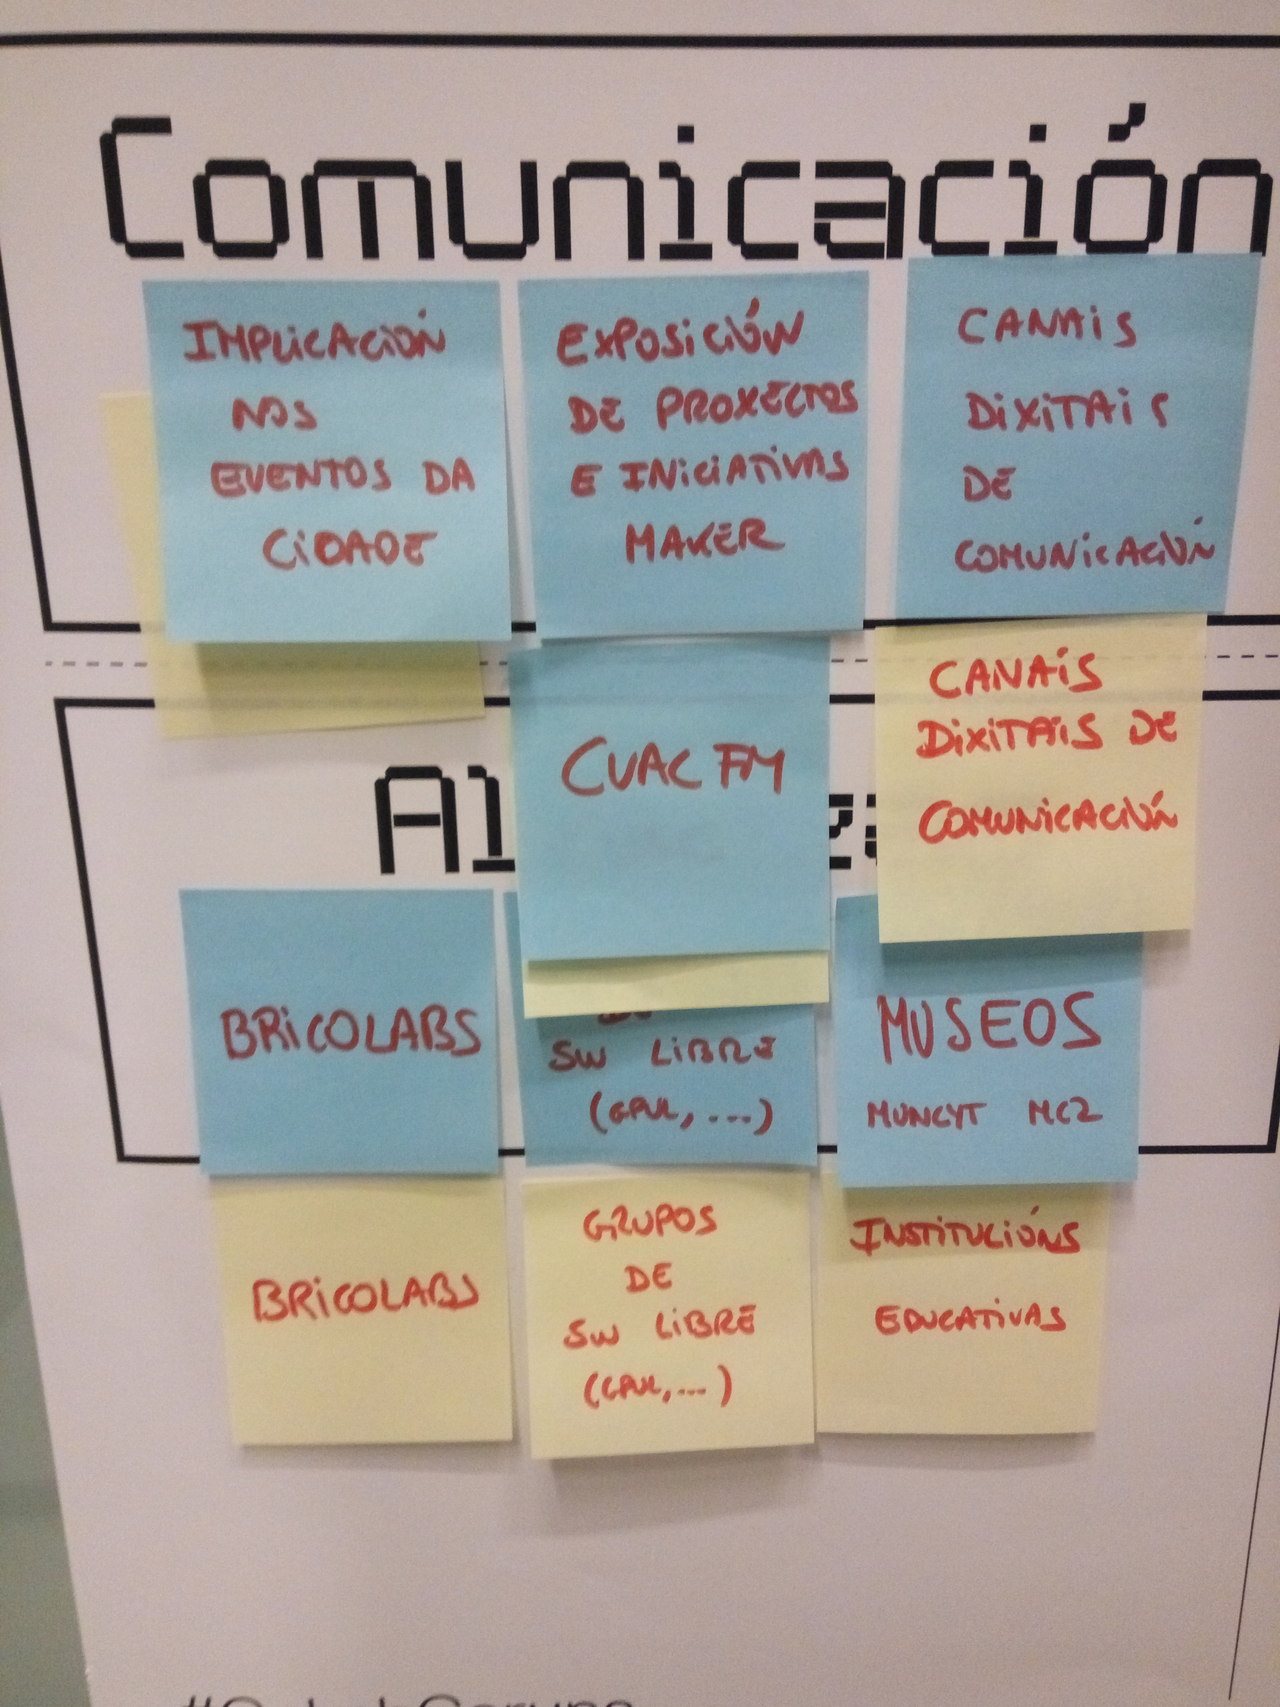 Comunicación
IMPLICACIÓN
NOS
EVENTOS DA
CIDADE
EXPOSICIÓN
DE PROXECTOS
E INICIATIVAS
MAKER
CANAIS
DIXITAIS
DE
COMUNICACIÓN
CUAC FM
CANAIS
DIXITAIS DE
COMUNICACIÓN
BRICOLABS
SW LIBRE
(GPUL, ...)
MUSEOS
MUNCYT MC2
BRICOLABS
GRUPOS
DE
SW LIBRE
(GPUL, ...)
INSTITUCIÓNS
EDUCATIVAS